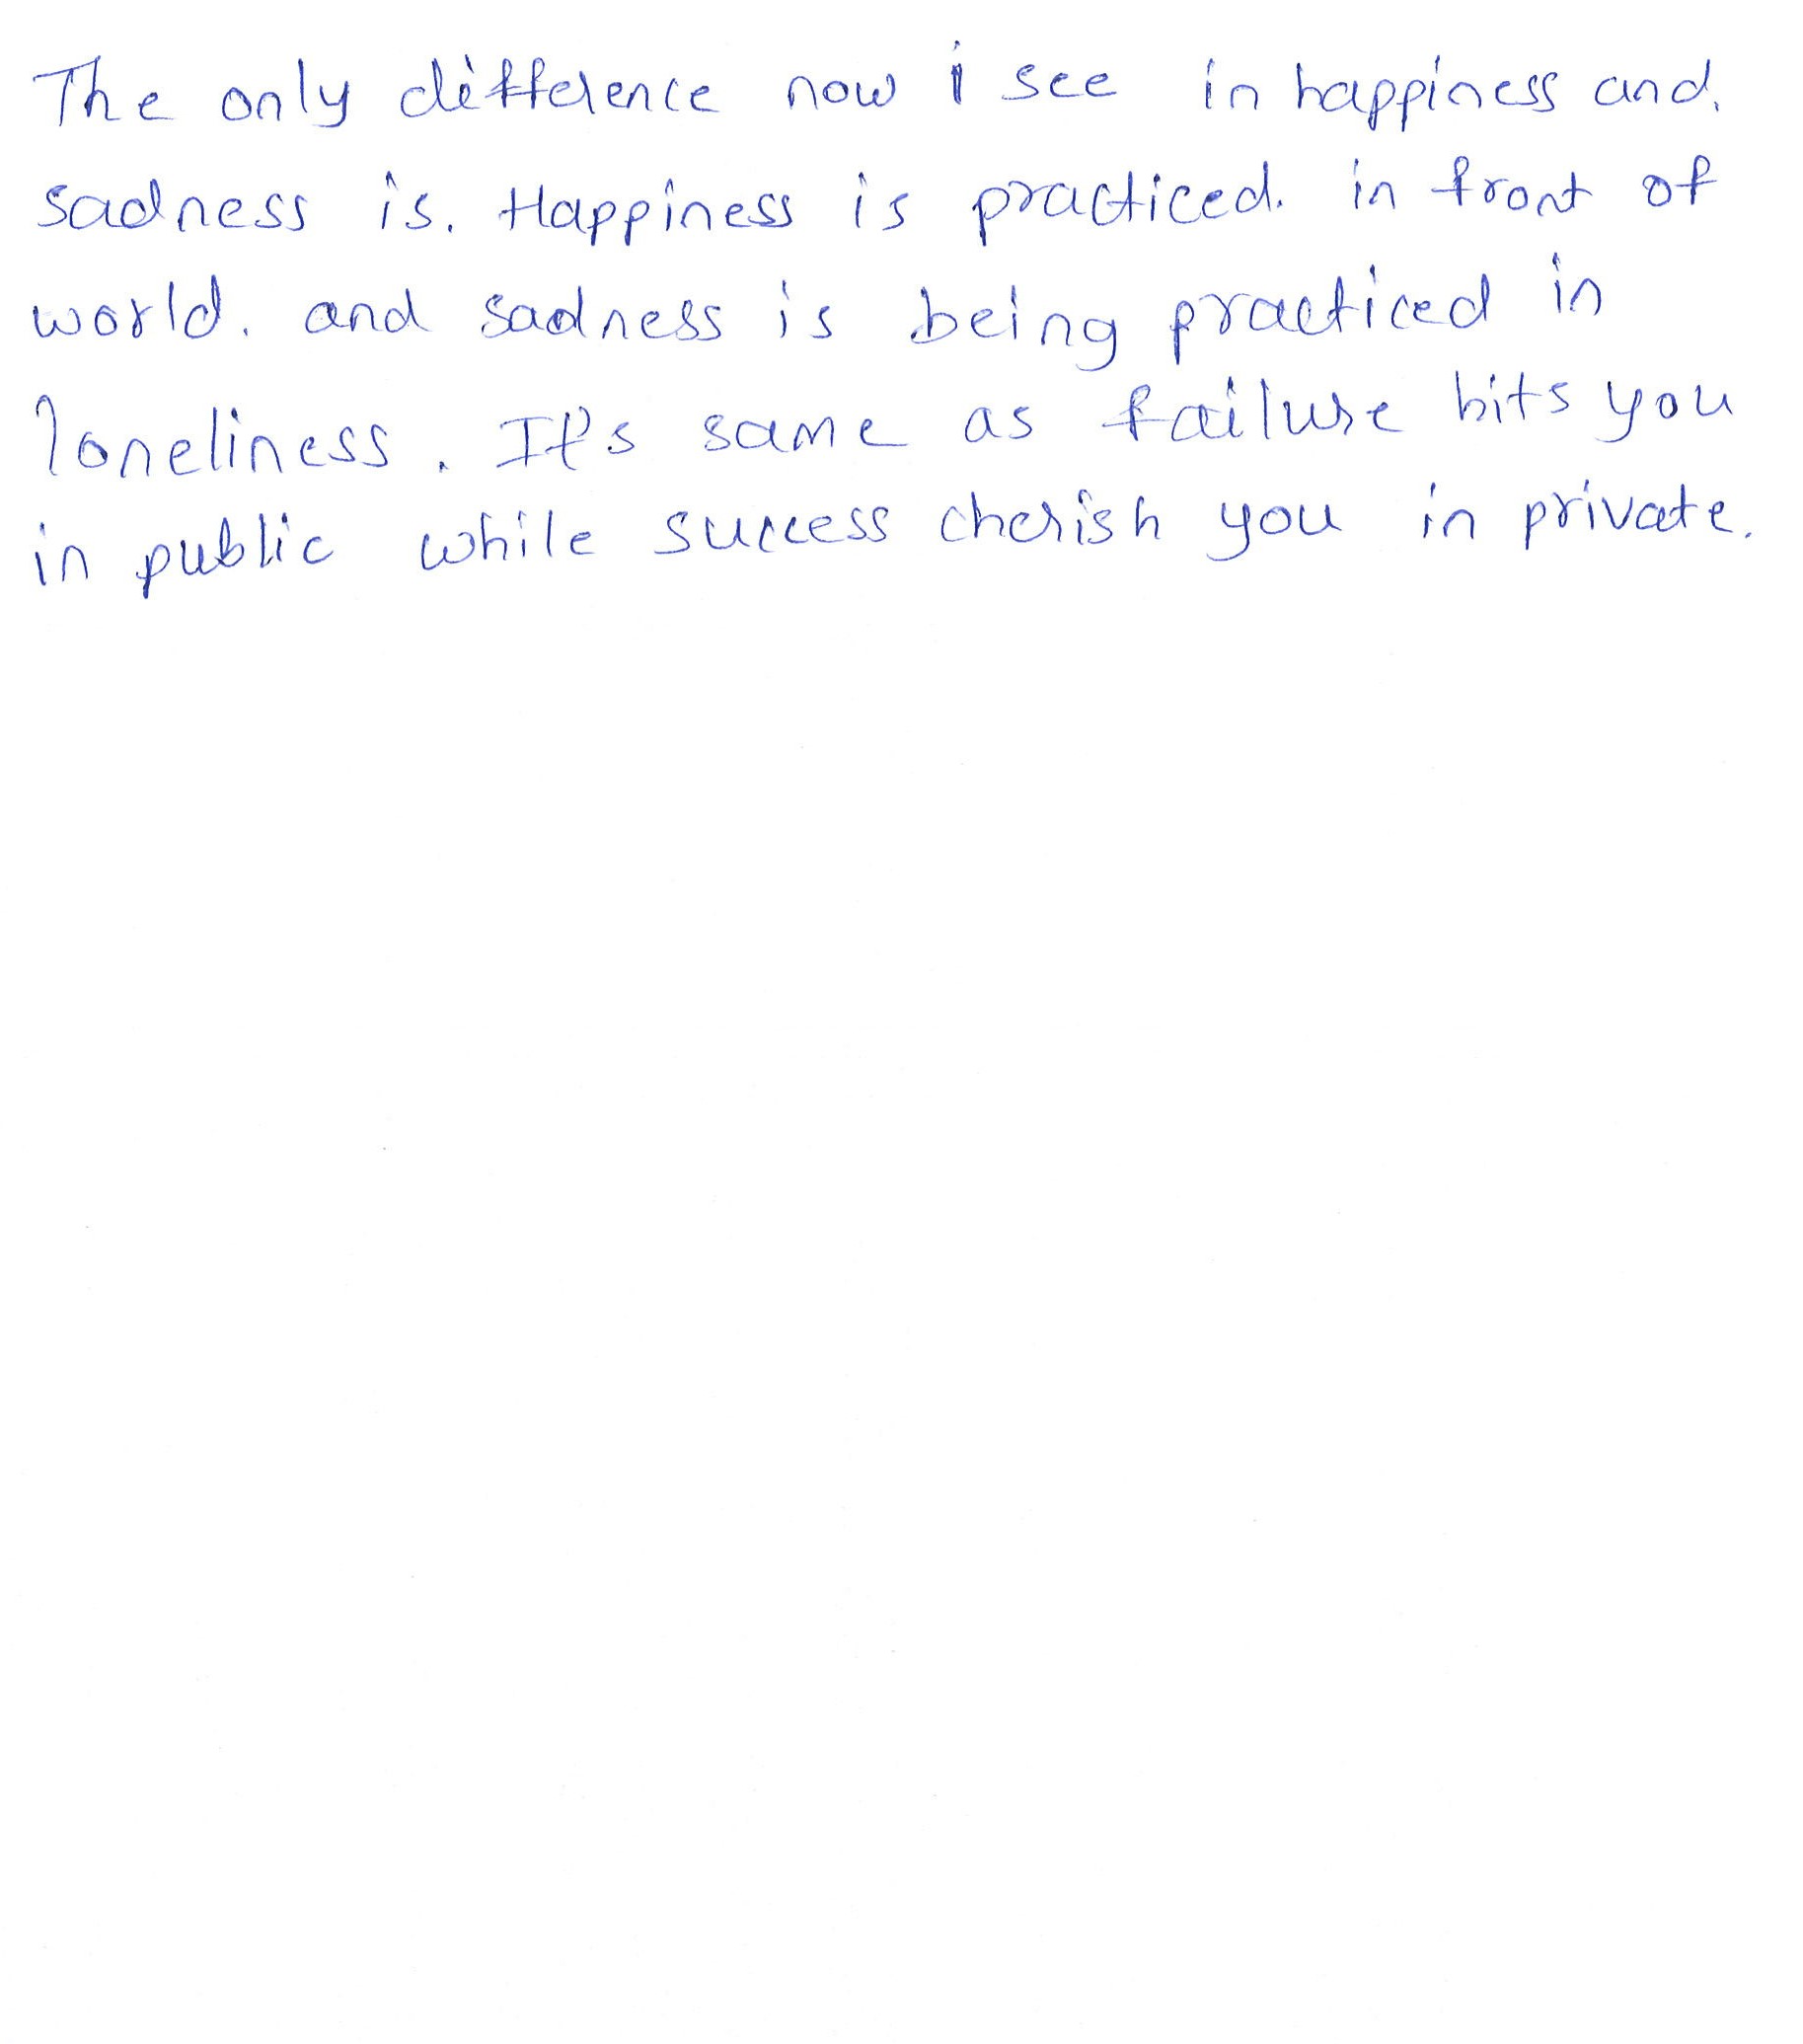 The only difference now i see in happiness and.
sadness is. Happiness is practiced. in front of
world. and sadness is being practiced in
loneliness. It's same as failure hits you
in public while success cherish you in private.